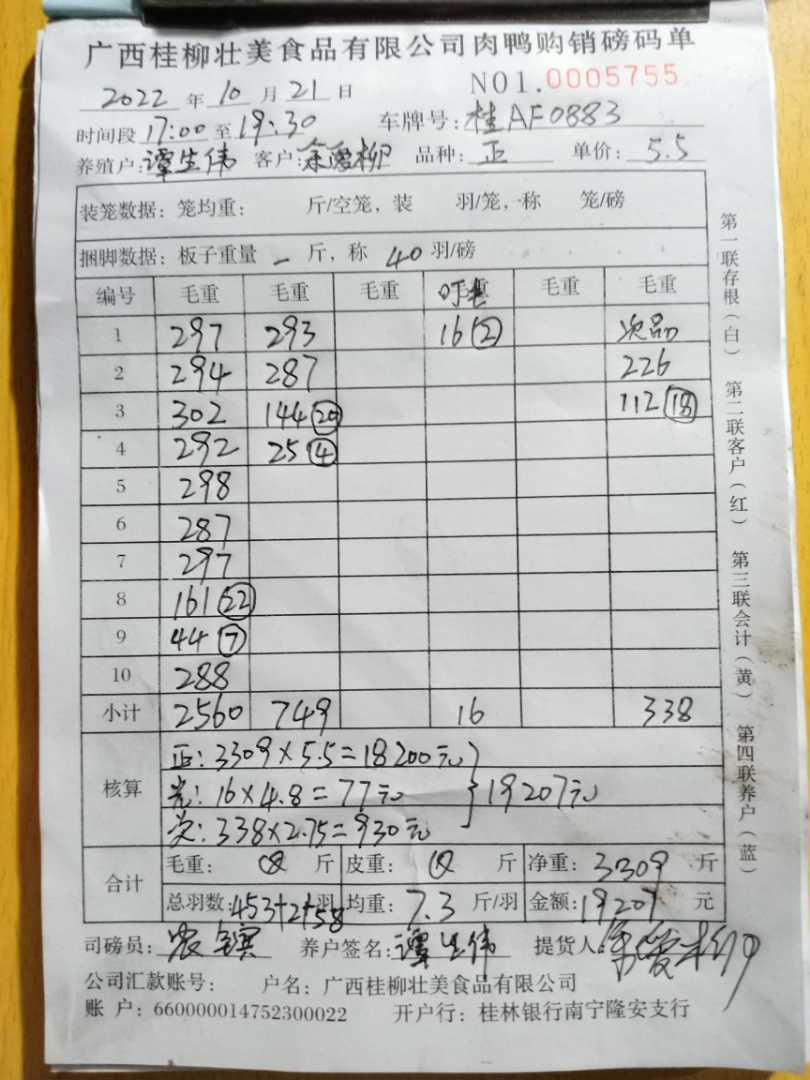 广西桂柳壮美食品有限公司肉鸭购销磅码单
2022年10月21日 NO1.0005755
时间段17:00至19:30 车牌号:桂AF0883
养殖户:谭生伟 客户:余爱柳 品种:正 单价:5.5
装笼数据:笼均重: 斤/空笼,装 羽/笼,称 笼/磅
捆脚数据:板子重量 - 斤,称 40羽/磅
编号 毛重 毛重 毛重 毛重 毛重
1 297 293 16② 次品
2 294 287 226
3 302 144⑳ 112⑱
4 292 25④
5 298
6 287
7 297
8 161㉒
9 44⑦
10 288
小计 2560 749 16 338
核算 正:3309×5.5=18200元
光:16×4.8=77元 } 19207元
次:338×2.75=930元
合计 毛重: 斤 皮重: 斤 净重:3309斤
总羽数:453+2+58羽 均重:7.3斤/羽 金额:19207元
司磅员: 养户签名:谭生伟 提货人:余爱柳
公司汇款账号: 户名:广西桂柳壮美食品有限公司
账 户:660000014752300022 开户行:桂林银行南宁隆安支行
第一联存根(白) 第二联客户(红) 第三联会计(黄) 第四联养户(蓝)